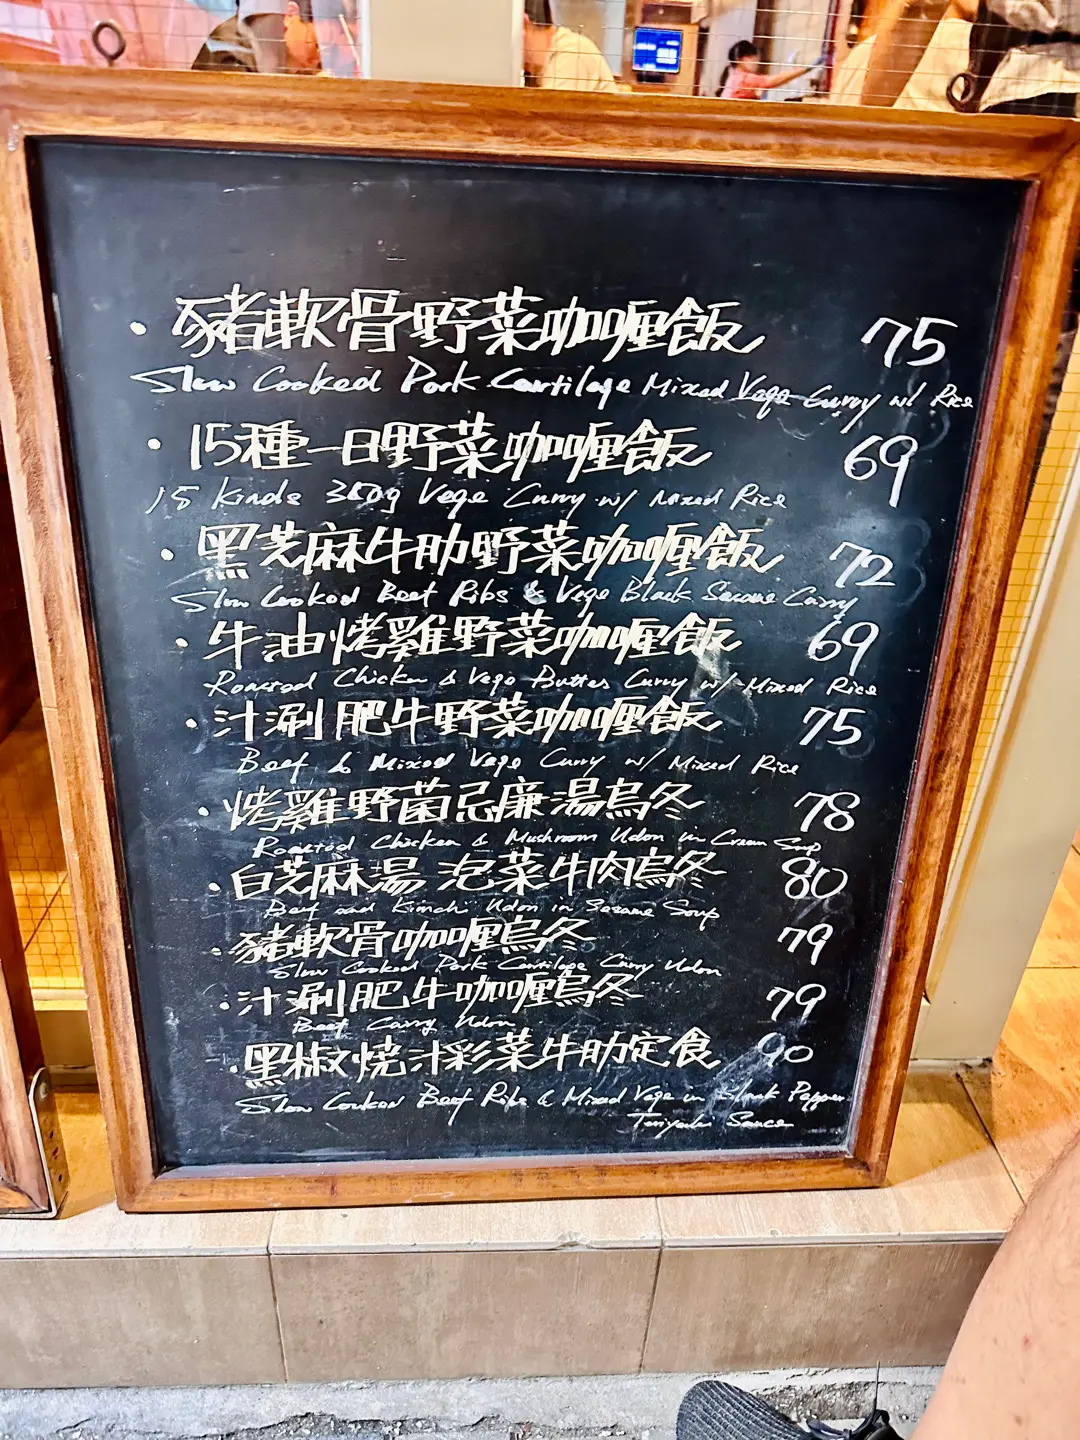 · 豬軟骨野菜咖喱飯 75
Slow Cooked Pork Cartilage Mixed Vege Curry w/ Rice
· 15種一日野菜咖喱飯 69
15 Kinds 350g Vege Curry w/ Mixed Rice
· 黑芝麻牛肋野菜咖喱飯 72
Slow Cooked Beef Ribs & Vege Black Sesame Curry
· 牛油烤雞野菜咖喱飯 69
Roasted Chicken & Vege Butter Curry w/ Mixed Rice
· 汁涮肥牛野菜咖喱飯 75
Beef & Mixed Vege Curry w/ Mixed Rice
· 烤雞野菌忌廉湯烏冬 78
Roasted Chicken & Mushroom Udon in Cream Soup
· 白芝麻湯 泡菜牛肉烏冬 80
Beef and Kimchi Udon in Sesame Soup
· 豬軟骨咖喱烏冬 79
Slow Cooked Pork Cartilage Curry Udon
· 汁涮肥牛咖喱烏冬 79
Beef Curry Udon
· 黑椒燒汁彩菜牛肋定食 90
Slow Cooked Beef Ribs & Mixed Vege in Black Pepper
Teriyaki Sauce